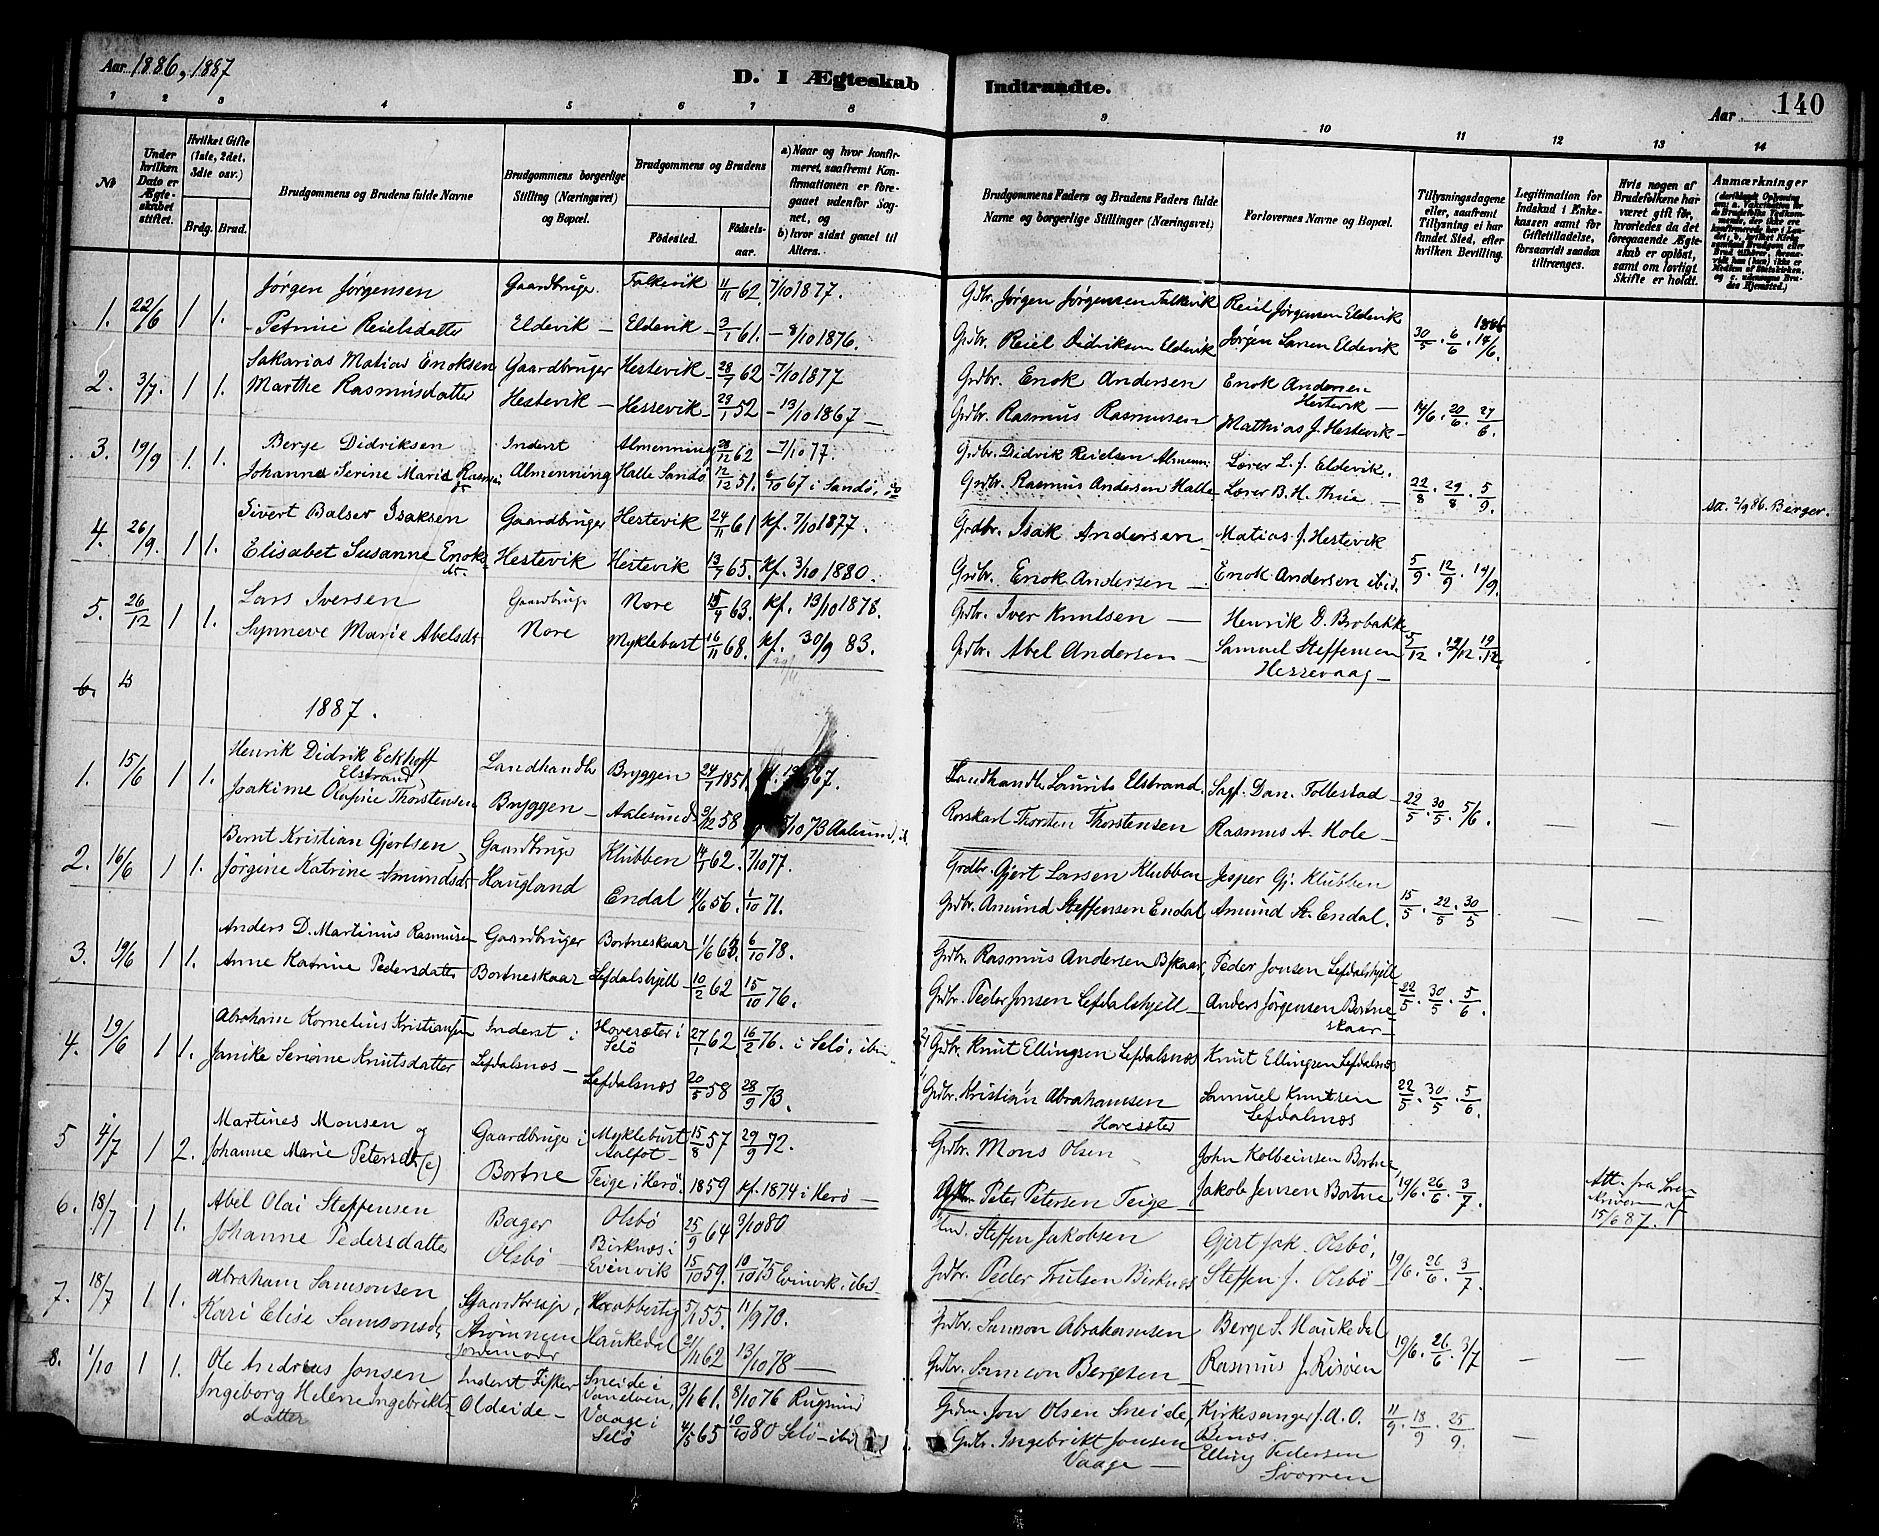 Aar 1886, 1887
D. I Ægteskab Indtraadte.
Aar 140
1 2 3 4 5 6 7 8 9 10 11 12 13 14
No
Under hvilken Dato er Ægteskabet stiftet.
Hvilket Gifte (1ste, 2det, 3die osv.)
Brdg. Brud.
Brudgommens og Brudens fulde Navne
Brudgommens borgerlige Stilling (Næringsvei) og Bopæl.
Brudgommens og Brudens
Fødested. Fødselsaar.
a) Naar og hvor konfirmeret, saafremt Konfirmationen er foregaaet udenfor Sognet, og
b) hvor sidst gaaet til Alters.
Brudgommens Faders og Brudens Faders fulde Navne og borgerlige Stillinger (Næringsvei)
Forlovernes Navne og Bopæl.
Tillysningsdagene eller, saafremt Tillysning ei har fundet Sted, efter hvilken Bevilling.
Legitimation for Indskud i Enkekassen samt for Giftetilladelse, forsaavidt saadan tiltrænges.
Hvis nogen af Brudefolkene har været gift før, hvorledes da det foregaaende Ægteskab er opløst, samt om lovligt Skifte er holdt.
Anmærkninger
1. 22/6 1 1. Jørgen Jørgensen Gaardbruger Falkevik 11/11 62 7/10 1877. Gdbr. Jørgen Jørgensen Falkevik Reiel Jørgensen Eldevik 1886
Petrine Reielsdatter Eldevik Eldevik 3/1 61. 8/10 1876. Grdbr. Reiel Didriksen Eldevik Jørgen Larsen Eldevik 30/5. 6/6. 14/6.
2. 3/7. 1 1. Sakarias Matias Enoksen Gaardbruger Hestevik 28/7 62 7/10 1877 Grdbr. Enok Andersen Enok Andersen Hestevik
Marthe Rasmusdatter Hestevik Hessevik 23/1 52 13/10 1867 Grdbr. Rasmus Rasmussen Mathias J. Hestevik 14/6. 20/6. 27/6.
3. 19/9 1. 1. Berge Didriksen Inderst Almenning 28/12 62 7/10 77. Grdbr. Didrik Reielsen Almenn: Lærer L. J. Eldevik.
Johanne Serine Marie Rasmus: Almenning Halle Sandø 12/12 51. 6/10 67 i Sandø, Grdbr. Rasmus Andersen Halle Lærer B. H. Thue 22/8. 29/8. 5/9. sa. 2/9 86. Berger.
4. 26/9. 1 1. Sivert Balser Isaksen Gaardbruger Hestevik 24/11 61 kf. 7/10 1877. Grdbr. Isak Andersen Matias J. Hestevik
Elisabet Susanne Enoksdt. Hestevik Hestevik 13/7 65. kf. 3/10 1880. Grdbr. Enok Andersen Enok Andersen ibid. 5/9. 12/9. 14/9.
5. 26/12 1 1. Lars Iversen Gaardbruger Nore 15/4 63. kf. 13/10 1878. Grdbr. Iver Knutsen Henrik D. Brobakke
Synneve Marie Abelsdt. Nore Myklebust 16/11 68. kf. 30/9 83. Grdbr. Abel Andersen Samuel Steffensen Hessevaag 5/12. 12/12. 19/12.
6.
1887.
1. 15/6 1 1. Henrik Didrik Eckhoff Elstrand Landhandler Bryggen 24/7 1851. 67. Landhandler Laurits Elstrand Sagf. Dan. Tollestad
Joakime Olufine Thorstensen Bryggen Aalesund 3/12 58 5/10 73 Aalesund, Rorskarl Thorsten Thorstensen Rasmus A. Hole 22/5. 30/5. 5/6. — —
2. 16/6 1 1. Bernt Kristian Gjertsen Gaardbruger Klubben 14/1 62. 7/10 77. Grdbr. Gjert Larsen Klubben Jesper Gj. Klubben
Jørgine Katrine Amundsdt. Haugland Endal 11/6 56. 1/10 71. Grdbr. Amund Steffensen Endal Amund St. Endal. 15/5. 22/5. 30/5 — —
3. 19/6 1 1. Anders D. Martinus Rasmussen Gaardbruger Bortneskaar 1/6 63. 6/10 78. Grdbr. Rasmus Andersen B.skaar, Peder Jonsen Lefdalshjell
Anne Katrine Pedersdatter Bortneskaar Lefdalshjell 10/2 62 15/10 76. Grdbr. Peder Jonsen Lefdalshjell Anders Jørgensen Bortneskaar 22/5. 30/5. 5/6.
4. 19/6 1 1. Abraham Kornelius Kristiansen Inderst i Hovesæter i Selø 27/1 62 16/2 76. i Selø, ibid. Grdbr. Knut Ellingsen Lefdalsnæs Knut Ellingsen Lefdalsnæs
Janike Serine Knutsdatter Lefdalsnæs Lefdalsnæs 20/5 58 28/9 73. Grdbr. Kristian Abrahamsen Hovesæter Samuel Knutsen Lefdalsnæs 22/5. 30/5. 5/6.
5 4/7 1 2. Martines Monsen og Gaardbruger i Myklebust Aalfot 15/8 57 29/9 72. Grdbr. Mons Olsen John Kolbeinsen Bortne
Johanne Marie Petersdt. (e) Bortne Teige i Herø. 1859 kf. 1874 i Herø Peter Petersen Teige Jakob Jensen Bortne 19/6. 26/6. 3/7. Att. fra 15/6 87.
6. 18/7 1 1. Abel Olai Steffensen Bager Olsbø 25/9 64 3/10 80 Steffen Jakobsen Gjert Jak. Olsbø,
Johanne Pedersdatter Olsbø Birknæs i Evenvik 15/10 59. 10/10 75 Evinvik, ibid. Grdbr. Peder Trulsen Birknæs Steffen J. Olsbø 19/6. 26/6. 3/7
7. 18/7 1 1. Abraham Samsonsen Gaardbruger, 5/1 55. 11/9 70. Grdbr. Samson Abrahamsen Berge S. Haukedal
Kari Elise Samsonsdt. Haukedal 21/11 62 13/10 78 Grdbr. Samson Bergesen Rasmus J. Risøen 19/6. 26/6. 3/7 — —
8. 1/10 1 1. Ole Andreas Jonsen Inderst Fisker Sneide i 3/1 61. 8/10 76 Rugsund Grdm. Jon Olsen Sneide, Kirkesanger J. A. O.
Ingeborg Helene Ingebriktsdatter Oldeide Vaage i Selø 4/5 65 10/10 80 Selø ibid. Grdbr. Ingebrikt Jonsen Vaage Elling Pedersen Svorren 11/9. 18/9. 25/9. —